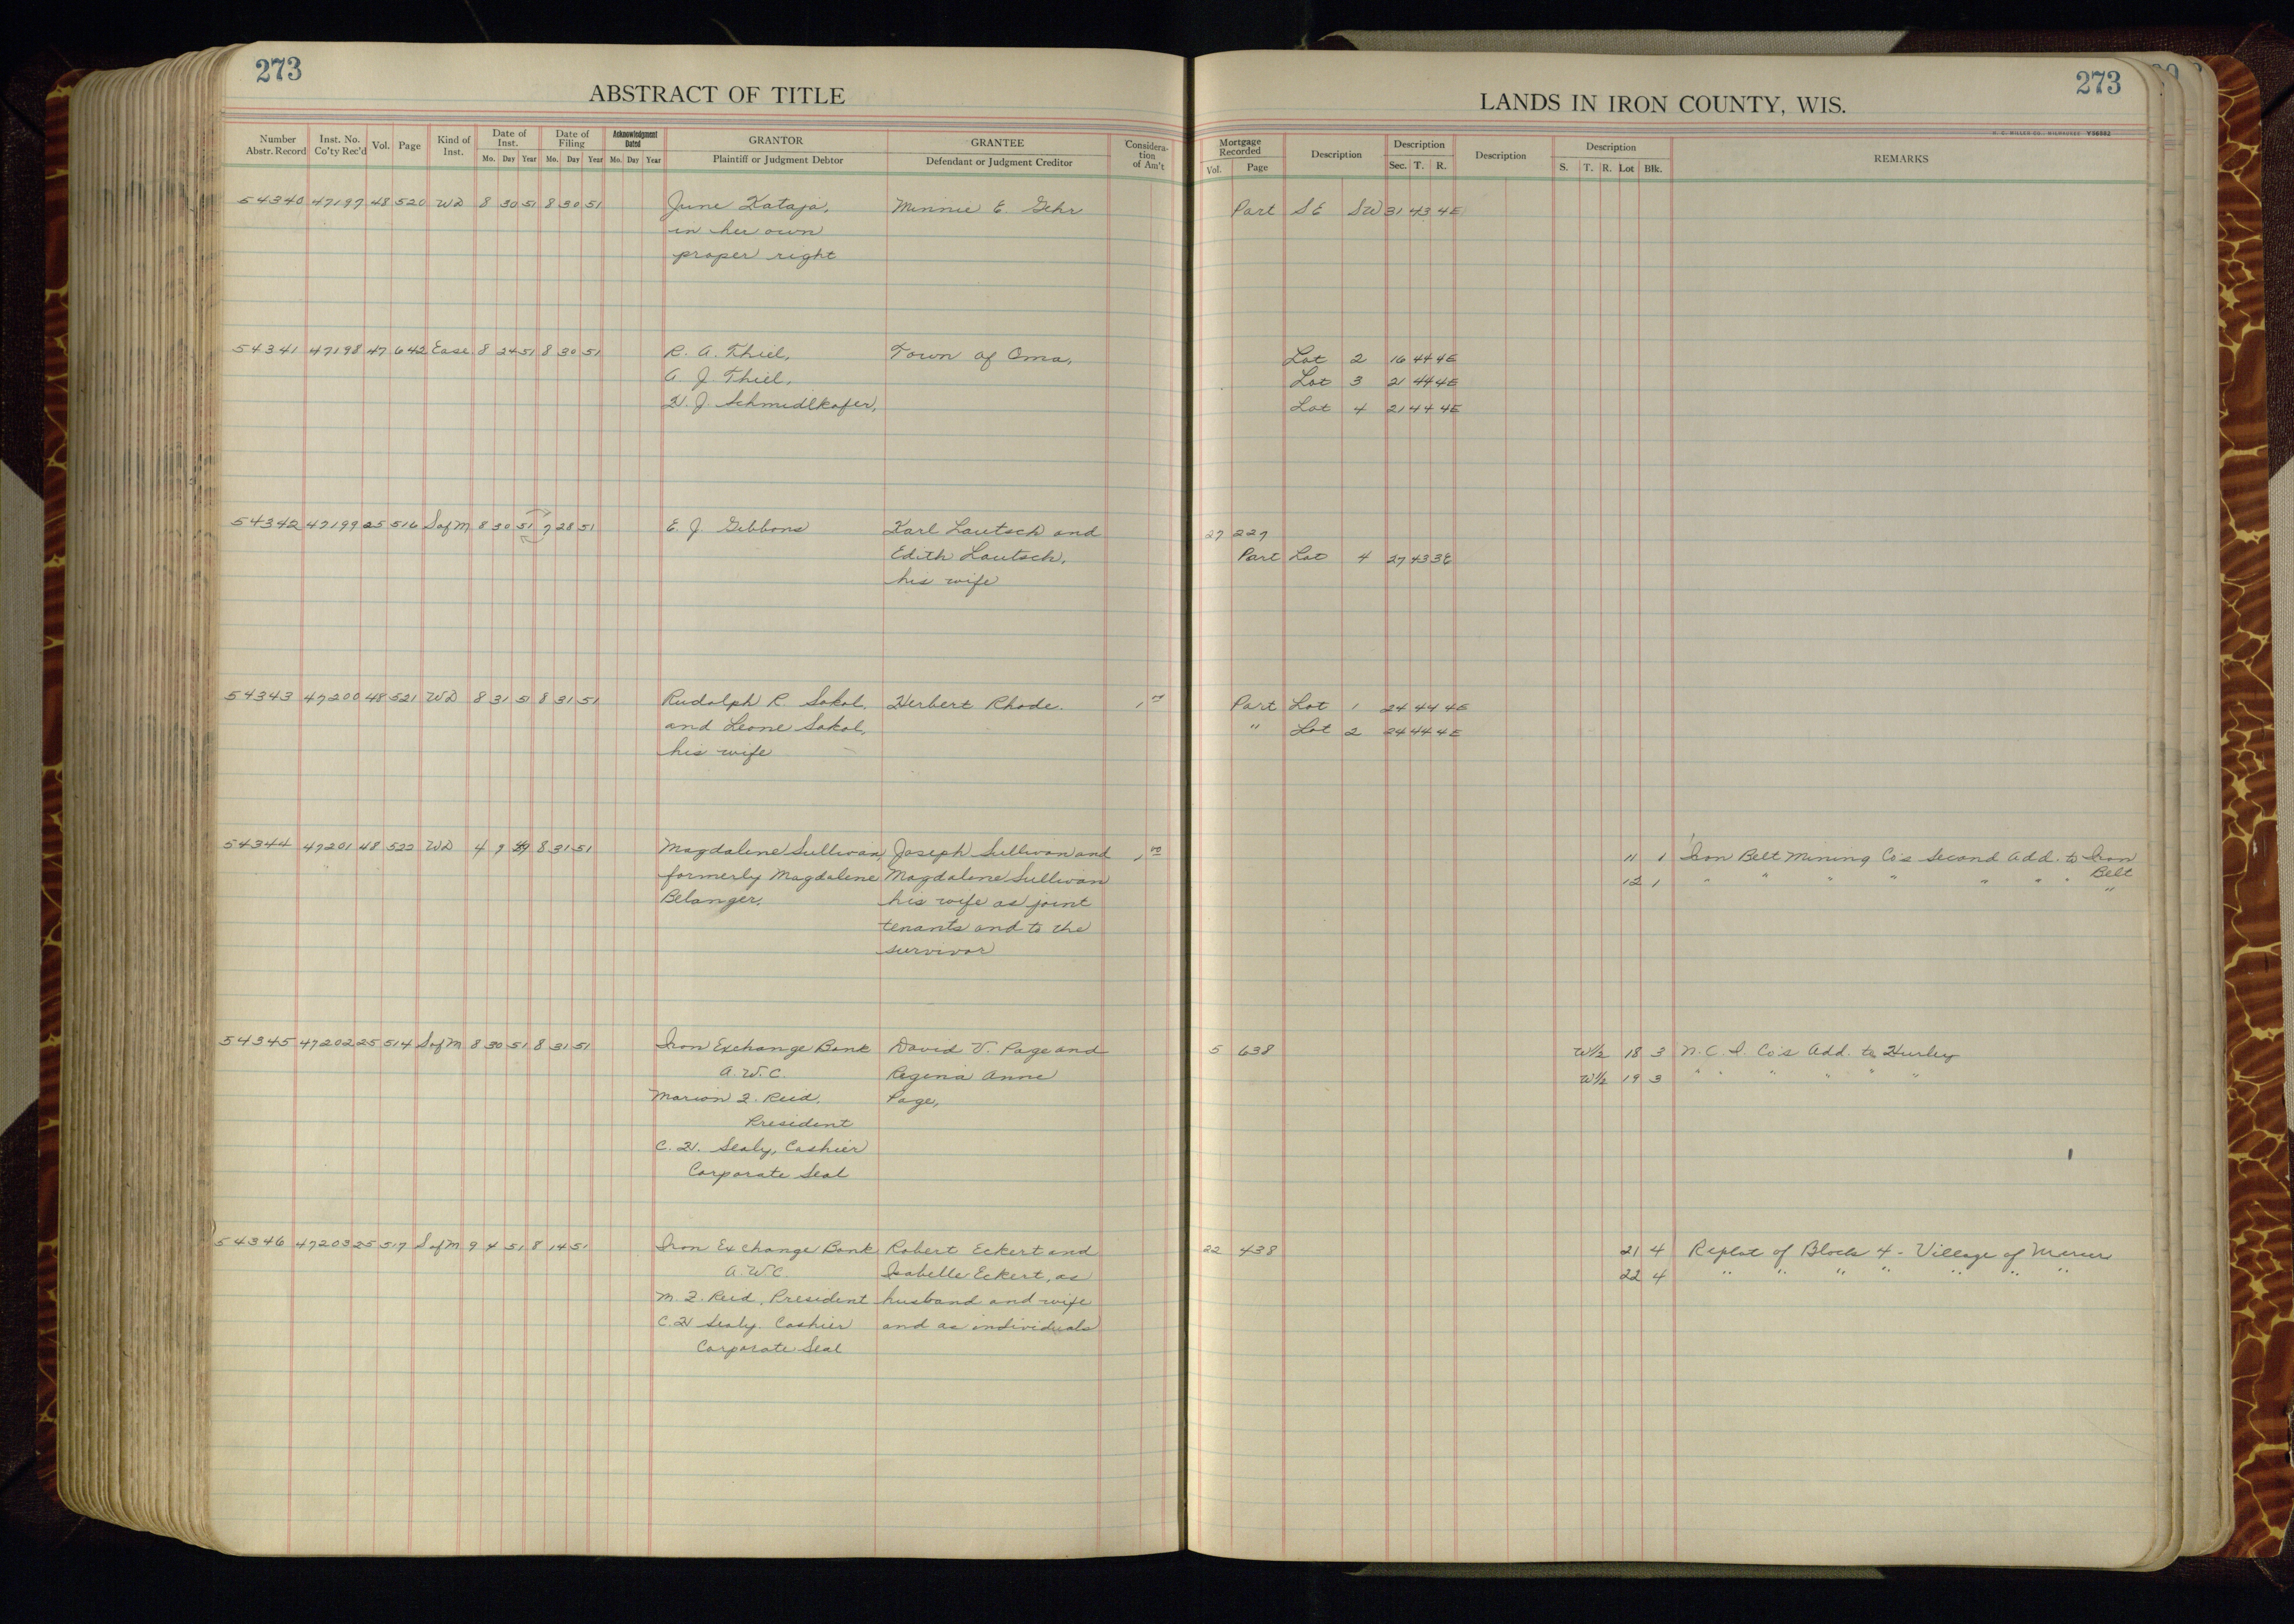 273
ABSTRACT OF TITLE
Number Abstr. Record | Inst. No. Co'ty Rec'd | Vol. | Page | Kind of Inst. | Date of Inst. Mo. Day Year | Date of Filing Mo. Day Year | Acknowledgment Dated Mo. Day Year | GRANTOR Plaintiff or Judgment Debtor | GRANTEE Defendant or Judgment Creditor | Consideration of Am't
54340 47197 48 520 WD 8 30 51 8 30 51 June Kataja, Minnie E. Gehr
in her own
proper right
54341 47198 47 642 Ease. 8 24 51 8 30 51 R. A. Thiel, Town of Oma,
A. J. Thiel,
H. J. Schmidlkofer,
54342 47199 25 516 S of M 8 30 51 7 28 51 E. J. Gibbons Karl Lautsch and
Edith Lautsch,
his wife
54343 47200 48 521 WD 8 31 51 8 31 51 Rudolph R. Sokol, Herbert Rhode.
and Leone Sokol,
his wife
54344 47201 48 522 WD 4 9 49 8 31 51 Magdalene Sullivan, Joseph Sullivan and 1 00
formerly Magdalene Magdalene Sullivan
Belanger. his wife as joint
tenants and to the
survivor
54345 47202 25 514 S of M 8 30 51 8 31 51 Iron Exchange Bank David V. Page and
A.W.C. Regina Anne
Marion F. Reid, Page,
President
C. H. Sealy, Cashier
Corporate Seal
54346 47203 25 517 S of M 9 4 51 8 14 51 Iron Exchange Bank Robert Eckert and
A.W.C. Isabelle Eckert, as
M. F. Reid, President husband and wife
C. H Sealy. Cashier and as individuals
Corporate Seal
273
LANDS IN IRON COUNTY, WIS.
H. C. MILLER CO. MILWAUKEE
Mortgage Recorded Vol. Page | Description | Description Sec. T. R. | Description | Description S. T. R. Lot Blk. | REMARKS
Part SE SW 31 43 4E
Lot 2 16 44 4E
Lot 3 21 44 4E
Lot 4 21 44 4E
27 227
Part Lot 4 27 43 3E
Part Lot 1 24 44 4E
" Lot 2 24 44 4E
11 1 Iron Belt Mining Co's Second Add. to Iron
Belt
12 1 " " " " " " " "
5 638 W1/2 18 3 N. C. I. Co's Add. to Hurley
W1/2 19 3 " " " " " "
22 438 21 4 Replat of Block 4 - Village of Mercer
22 4 " " " " " " "